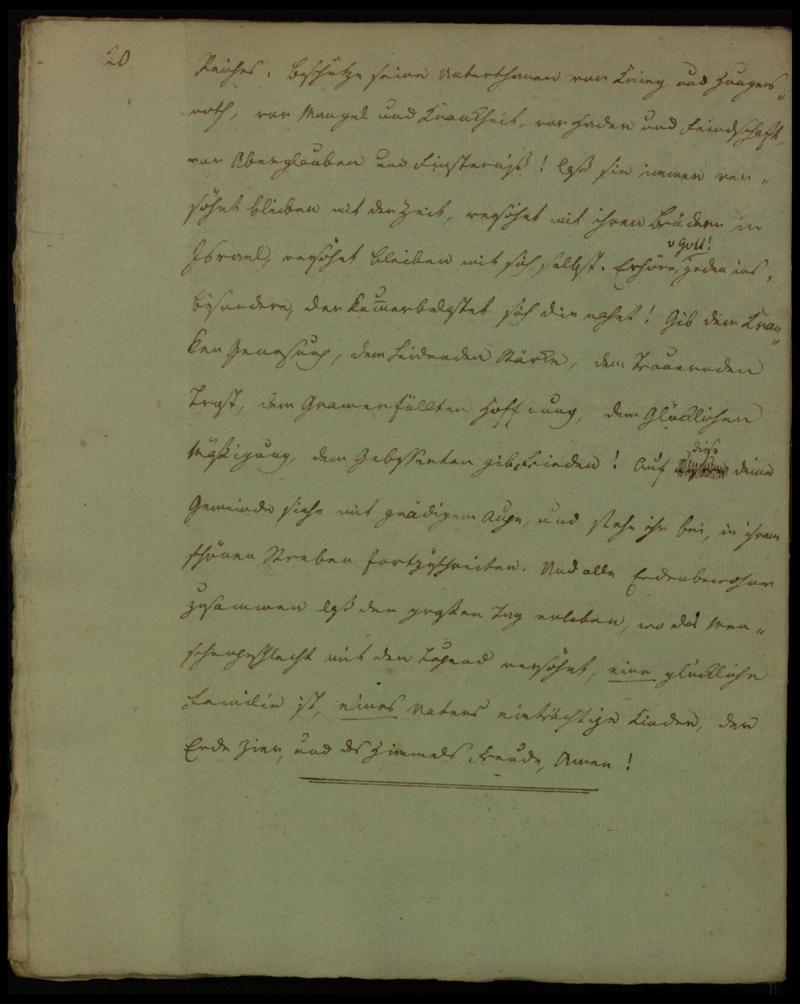 20
Reiches. Beschütze seine Unterthanen von Krieg und Hungers-
noth, von Mangel und Krankheit, von Hader und Feindschaft,
von Aberglauben und Finsterniß! Laß sie immer ver-
söhnt bleiben mit der Zeit, versöhnt mit ihren Brüdern in
Israel, versöhnt bleiben mit sich selbst. Erhöre, o Gott! jeden ins-
besondere, der kum̅erbelastet sich dir nahet! Gib dem Kran-
ken Genesung, dem Leidenden Stärke, dem Trauernden
Trost, dem Gramerfüllten Hoffnung, dem Glücklichen
Mäßigung, dem Gebesserten gib Frieden! Auf diese deine
Gemeinde siehe mit gnädigem Auge, und stehe ihr bei, in ihrem
schönen Streben fortzuschreiten. Und alle Erdenbewohner
zusammen laß den großen Tag erleben, wo das Men-
schengeschlecht mit der Tugend versöhnt, eine glückliche
Familie ist, eines Vaters einträchtige Kinder, der
Erde Zier, und des Himmels Freude, Amen!